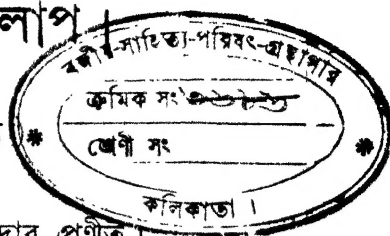 লাপ।
বঙ্গীয়-সাহিত্য-পরিষৎ-গ্রন্থাগার
ক্রমিক সং
শ্রেণী সং
কলিকাতা।
দার প্রণীত।